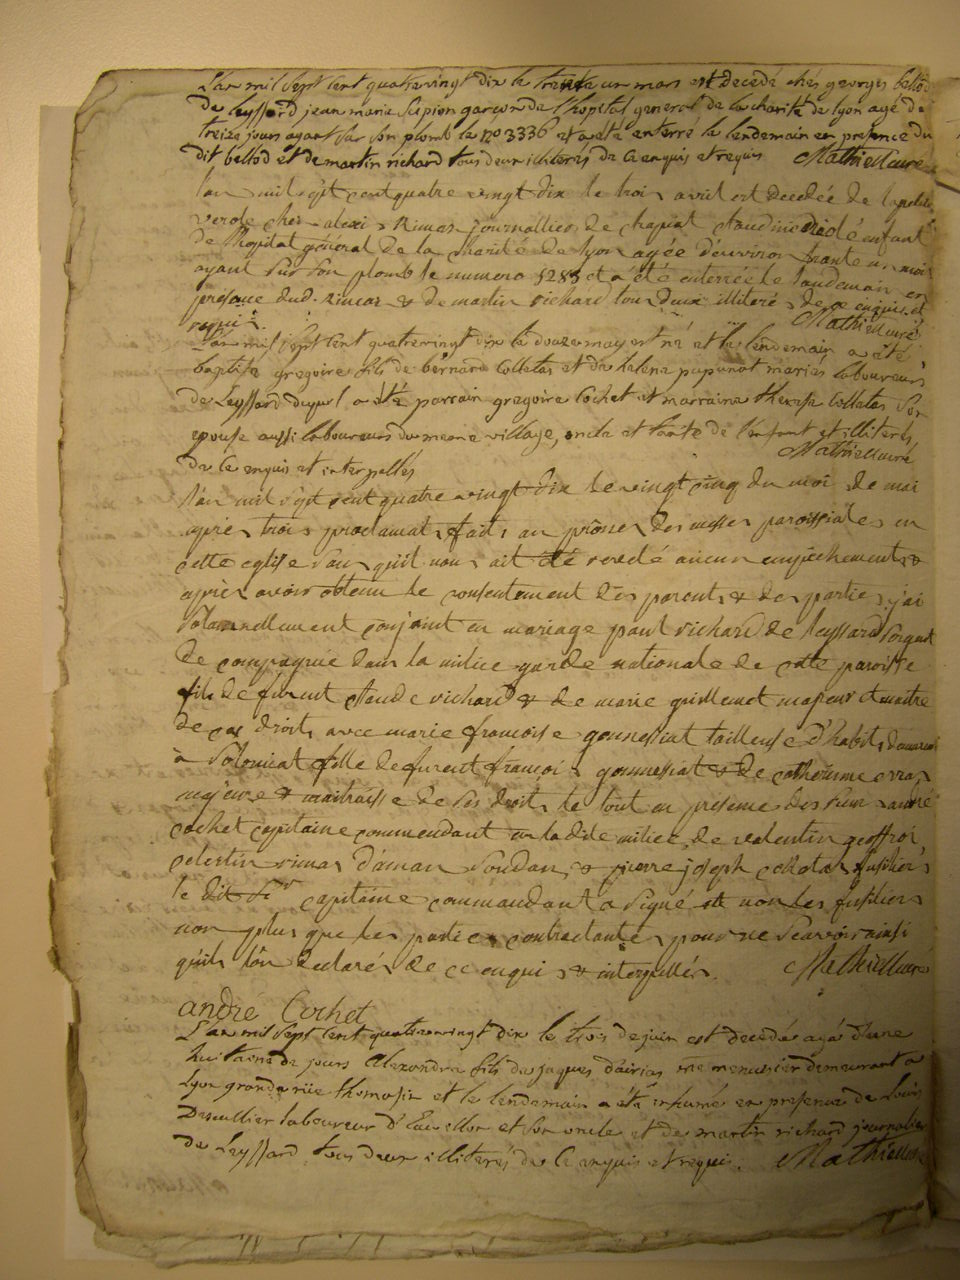 L'an mil sept cent quatrevingt dix le trente un mars est decedé chés georges bellod
de Leyssard jean marie Sipion garçon de l'hopital general de la charité de lyon agé de
treize jours ayant sur son plomb le no 3336 et a eté enterré le lendemain en presence du
dit bellod et de martin richard tous deux illiterés de ce enquis et requis Mathieu curé
l'an mil sept cent quatre vingt dix le trois avril est decedée de la petite
verole chez alexis Rimas journallier de chapiat claudine dié enfant
de l'hopital général de la charité de lyon agée d'environ trante un mois
ayant sur son plomb le numero 5285 et a été enterrée le landemain en
présence dud. Rimas & de martin richard tous deux illiteré, de ce enquis et
requis. Mathieu curé
L'an mil sept cent quatrevingt dix le douze may est né et le lendemain a eté
baptisé gregoire fils de bernard Colletas et de helene pupunat mariés laboureurs
de Leyssard duquel a été parrain gregoire Cochet et marraine therese Colletas son
epouse aussi laboureurs du meme village, oncle et tante de l'enfant et illiterés
de ce enquis et interpellés Mathieu curé
l'an mil sept cent quatre vingt dix le vingt cinq du moi de mai
apres trois proclamat. faits au prône des messes paroissiales en
cette eglise sans qu'il nous ait été revelé aucun empêchement &
après avoir obtenu le consentement des parents & des parties, j'ai
solamnellement conjoint en mariage paul richard de leyssard sergent
de compagnie dans la milice garde nationale de cette paroisse
fils de furent claude richard & de marie guillemet majeur & maitre
de ces droits avec marie francoise gonnessiat tailleuse d'habits demeurant
à Solomiat fille de furent françois gonnessiat & de catherine
majeure & maitraisse de ses droits, le tout en présence des sieur andré
cochet capitaine commendant en la dite milice, de valentin geoffroi
celestin rimas & pierre joseph colletas fusiliers
le dit Sr capitaine commandant a signé & non les fusiliers
non plus que les parties contractantes pour ne sçavoir ainsi
qu'ils l'on declarés de ce enqui, & interpellés. Mathieu curé
andré Cochet
L'an mil sept cent quatrevingt dix le trois de juin est decedé agé d'une
huitaine de jours Alexandre fils de jaques menusier demeurant a
Lyon grande rüe thomassin et le lendemain a été inhumé en presence de Louis
laboureur et son oncle et de martin richard journalier
de Leyssard tous deux illiterés de ce enquis et requis. Mathieu curé